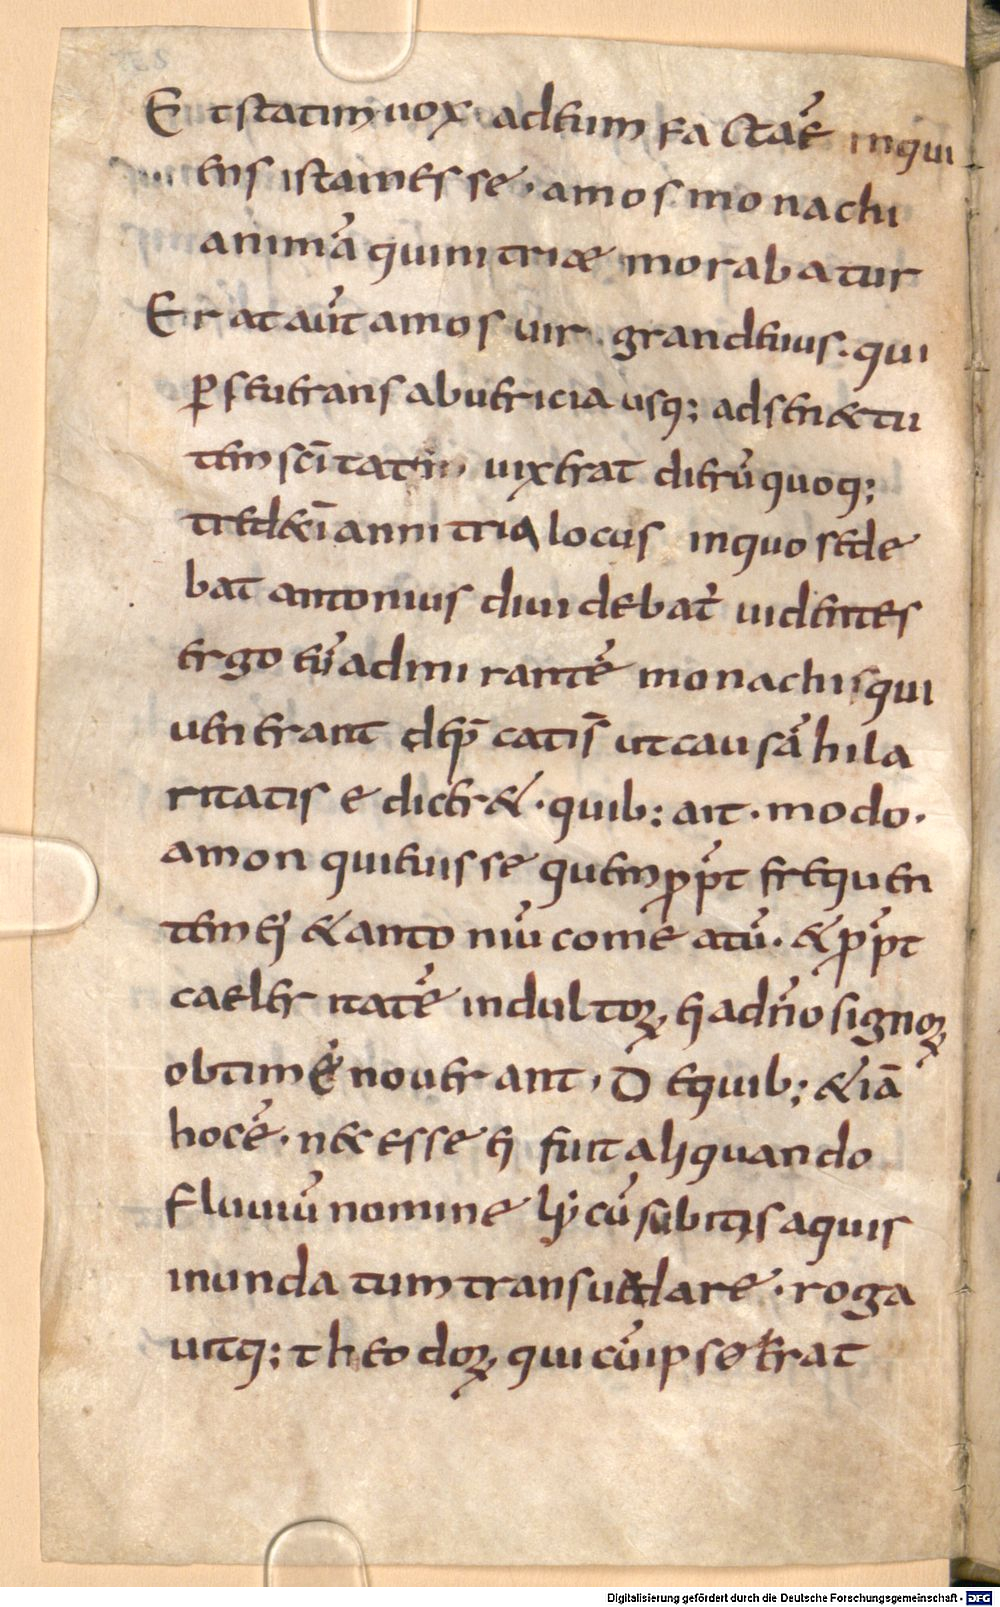 Et statim uox ad eum facta ē inqui
ens istam esse · amos monachi
animā qui in itriae morabatur
Erat aūt amos uir grandeuus · qui
p̱ seuerans abuericia usq; ad sen&tu
tem scītatem uixerat dierū quoq;
tredeci᷃ an nitria locus in quo sede
bat antonius diuidebat᷃ uidentes
ergo eū admirantē monachis qui
uenerant dep̄catis᷃ ut causā hila
ritatis edicer& · quib; ait · modo ·
amon quieuisse quem prop̄t frequen
tem ei & antoniū comeatū · & prop̄t
caeleritatē indultoꝝ ei ad n̄o signoꝝ
obtime nouerant · De quib; & iā
hoc ē · necesse ei fuit aliquando
fluuiū nomine lycū subitis aquis
inundatum transuadare · roga
uitq; theodoꝝ qui cū ipso erat
Digitalisierung gefördert durch die Deutsche Forschungsgemeinschaft - DFG